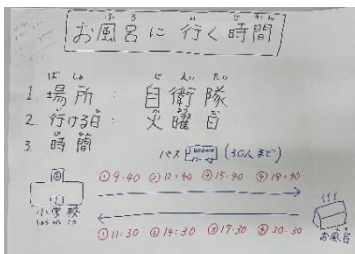 お風呂に行く時間
1. 場所: 自衛隊
2. 行ける日: 火曜日
3. 時間
バス (30人まで)
①9:40 ②12:40 ③15:40 ④18:40
小学校
しょうがっこう
①11:30 ②14:30 ③17:30 ④20:30
お風呂